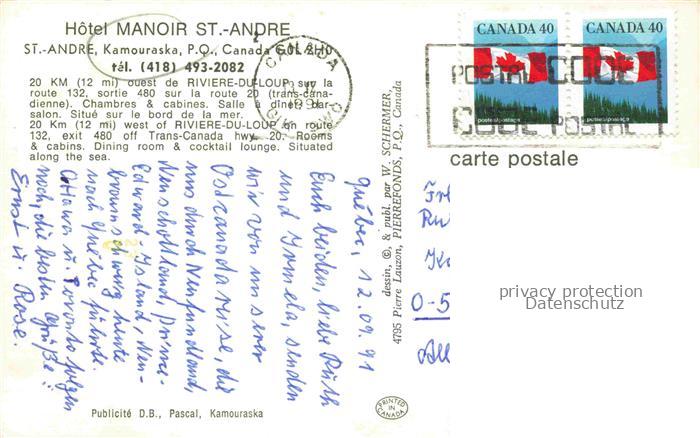 Hôtel MANOIR ST.-ANDRE
ST.-ANDRE, Kamouraska, P.Q., Canada G0L 2H0
tél. (418) 493-2082
20 KM (12 mi) ouest de RIVIERE-DU-LOUP sur la
route 132, sortie 480 sur la route 20 (trans-cana-
dienne). Chambres & cabines. Salle à dîner, bar-
salon. Situé sur le bord de la mer.
20 Km (12 mi) west of RIVIERE-DU-LOUP on route
132, exit 480 off Trans-Canada hwy. 20. Rooms
& cabins. Dining room & cocktail lounge. Situated
along the sea.
Québec, 12.09.91
Euch beiden, liebe Ruth
und Irmela, senden
wir von unserer
Ostcanadareise, die
uns durch Neufundland,
Neuschottland, Prince-
Edward-Island, Neu-
braunschweig heute
nach Québec führte.
Ottawa u. Toronto folgen
noch, die besten Grüße!
Ernst u. Rose.
Publicité D.B., Pascal, Kamouraska
dessin, ©, & publ. par W. SCHERMER,
4795 Pierre Lauzon, PIERREFONDS, P.Q., Canada
PRINTED IN CANADA
CANADA
CANADA 40
postes/postage
CANADA 40
postes/postage
POSTAL CODE
CODE POSTAL
carte postale
O-5
privacy protection
Datenschutz